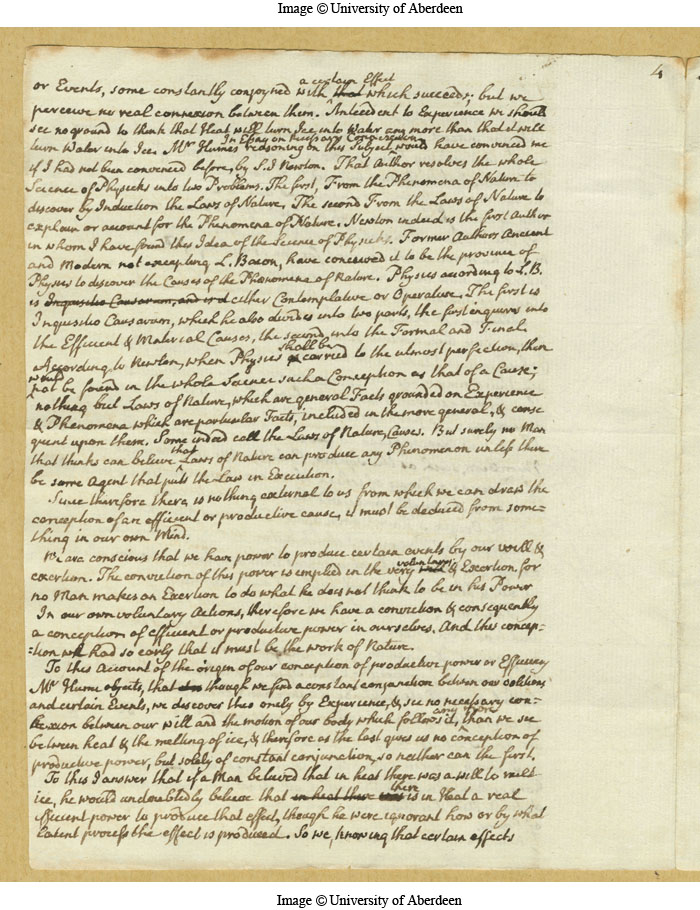 Image © University of Aberdeen
4
a certain Effect
or Events, some constantly conjoyned with that which succeeds; but we
perceive no real connexion between them. Antecedent to Experience we should
see no ground to think that Heat will turn Ice into Water any more than that it will
In Essay on necessary Connection
turn Water into Ice. Mr Humes reasoning on this Subject would have convinced me
if I had not been convinced before, by S. I Newton. That Author resolves the whole
Science of Physicks into two Problems. The first, From the Phenomena of Nature to
discover by Induction the Laws of Nature, The second From the Laws of Nature to
explain or account for the Phenomena of Nature. Newton indeed is the first Author
in whom I have found this Idea of the Science of Physicks. Former Authors Ancient
and Modern not excepting L. Bacon, have conceived it to be the province of
Physics to discover the Causes of the Phenomena of Nature. Physics according to L. B.
is Inquisitio Causarum, and is d either Contemplative or Operative. The first is
Inquisitio Causarum, which he also divides into two parts, the first enquires into
the Efficient & Material Causes, the second, into the Formal and Final.
shall be
According, to Newton, when Physics carried to the utmost perfection, there
would
not be found in the whole Science such a Conception as that of a Cause;
nothing but Laws of Nature, which are general Facts grounded on Experience
& Phenomena which are particular Facts, included in the more general, & conse
quent upon them. Some indeed call the Laws of Nature, Causes. But surely no Man
that
that thinks can believe Laws of Nature can produce any Phenomenon unless there
be some Agent that puts the Law in Execution.
Since therefore there is nothing external to us from which we can draw the
conception of an efficient or productive cause, it must be deduced from some=
thing in our own Mind.
We are conscious that we have power to produce certain events by our will &
voluntary
exertion. The conviction of this power is implied in the very & Exertion for
no Man makes an Exertion to do what he does not think to be in his Power
In our own voluntary Actions, therefore we have a conviction & consequently
a conception of efficient or productive power in ourselves. And this concep=
=tion we had so early that it must be the work of Nature.
To this Account of the origin of our conception of productive power or Efficiency
Mr Hume objects, that though we find a constant conjunction between our volitions
and certain Events, we discover this onely by Experience, & see no necessary con=
any more
nexion between our will and the motion of our body which follows it, than we see
between heat & the melting of ice, & therefore as the last gives us no conception of
productive power, but solely of constant conjunction, so neither can the first.
To this I answer that if a Man believed that in heat there was a will to melt
there
ice, he would undoubtedly believe that in heat there is in Heat a real
efficient power to produce that effect, though he were ignorant how or by what
latent process the effect is produced. So we, knowing that certain effects
Image © University of Aberdeen